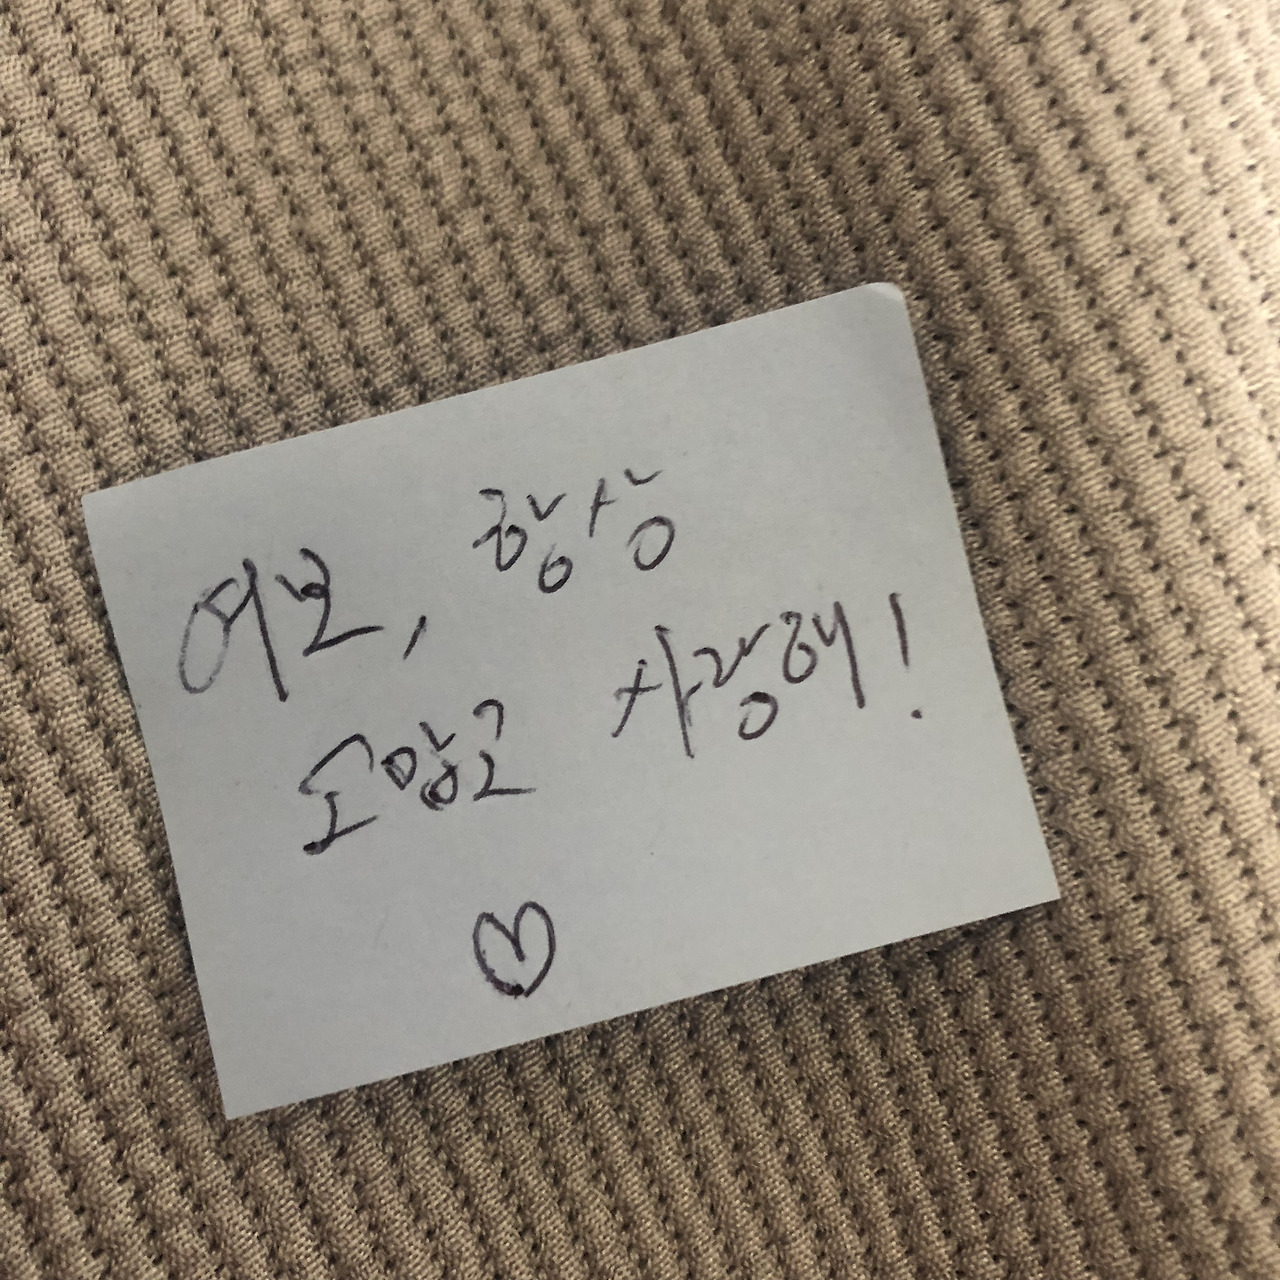 여보, 항상
고맙고 사랑해!
♡